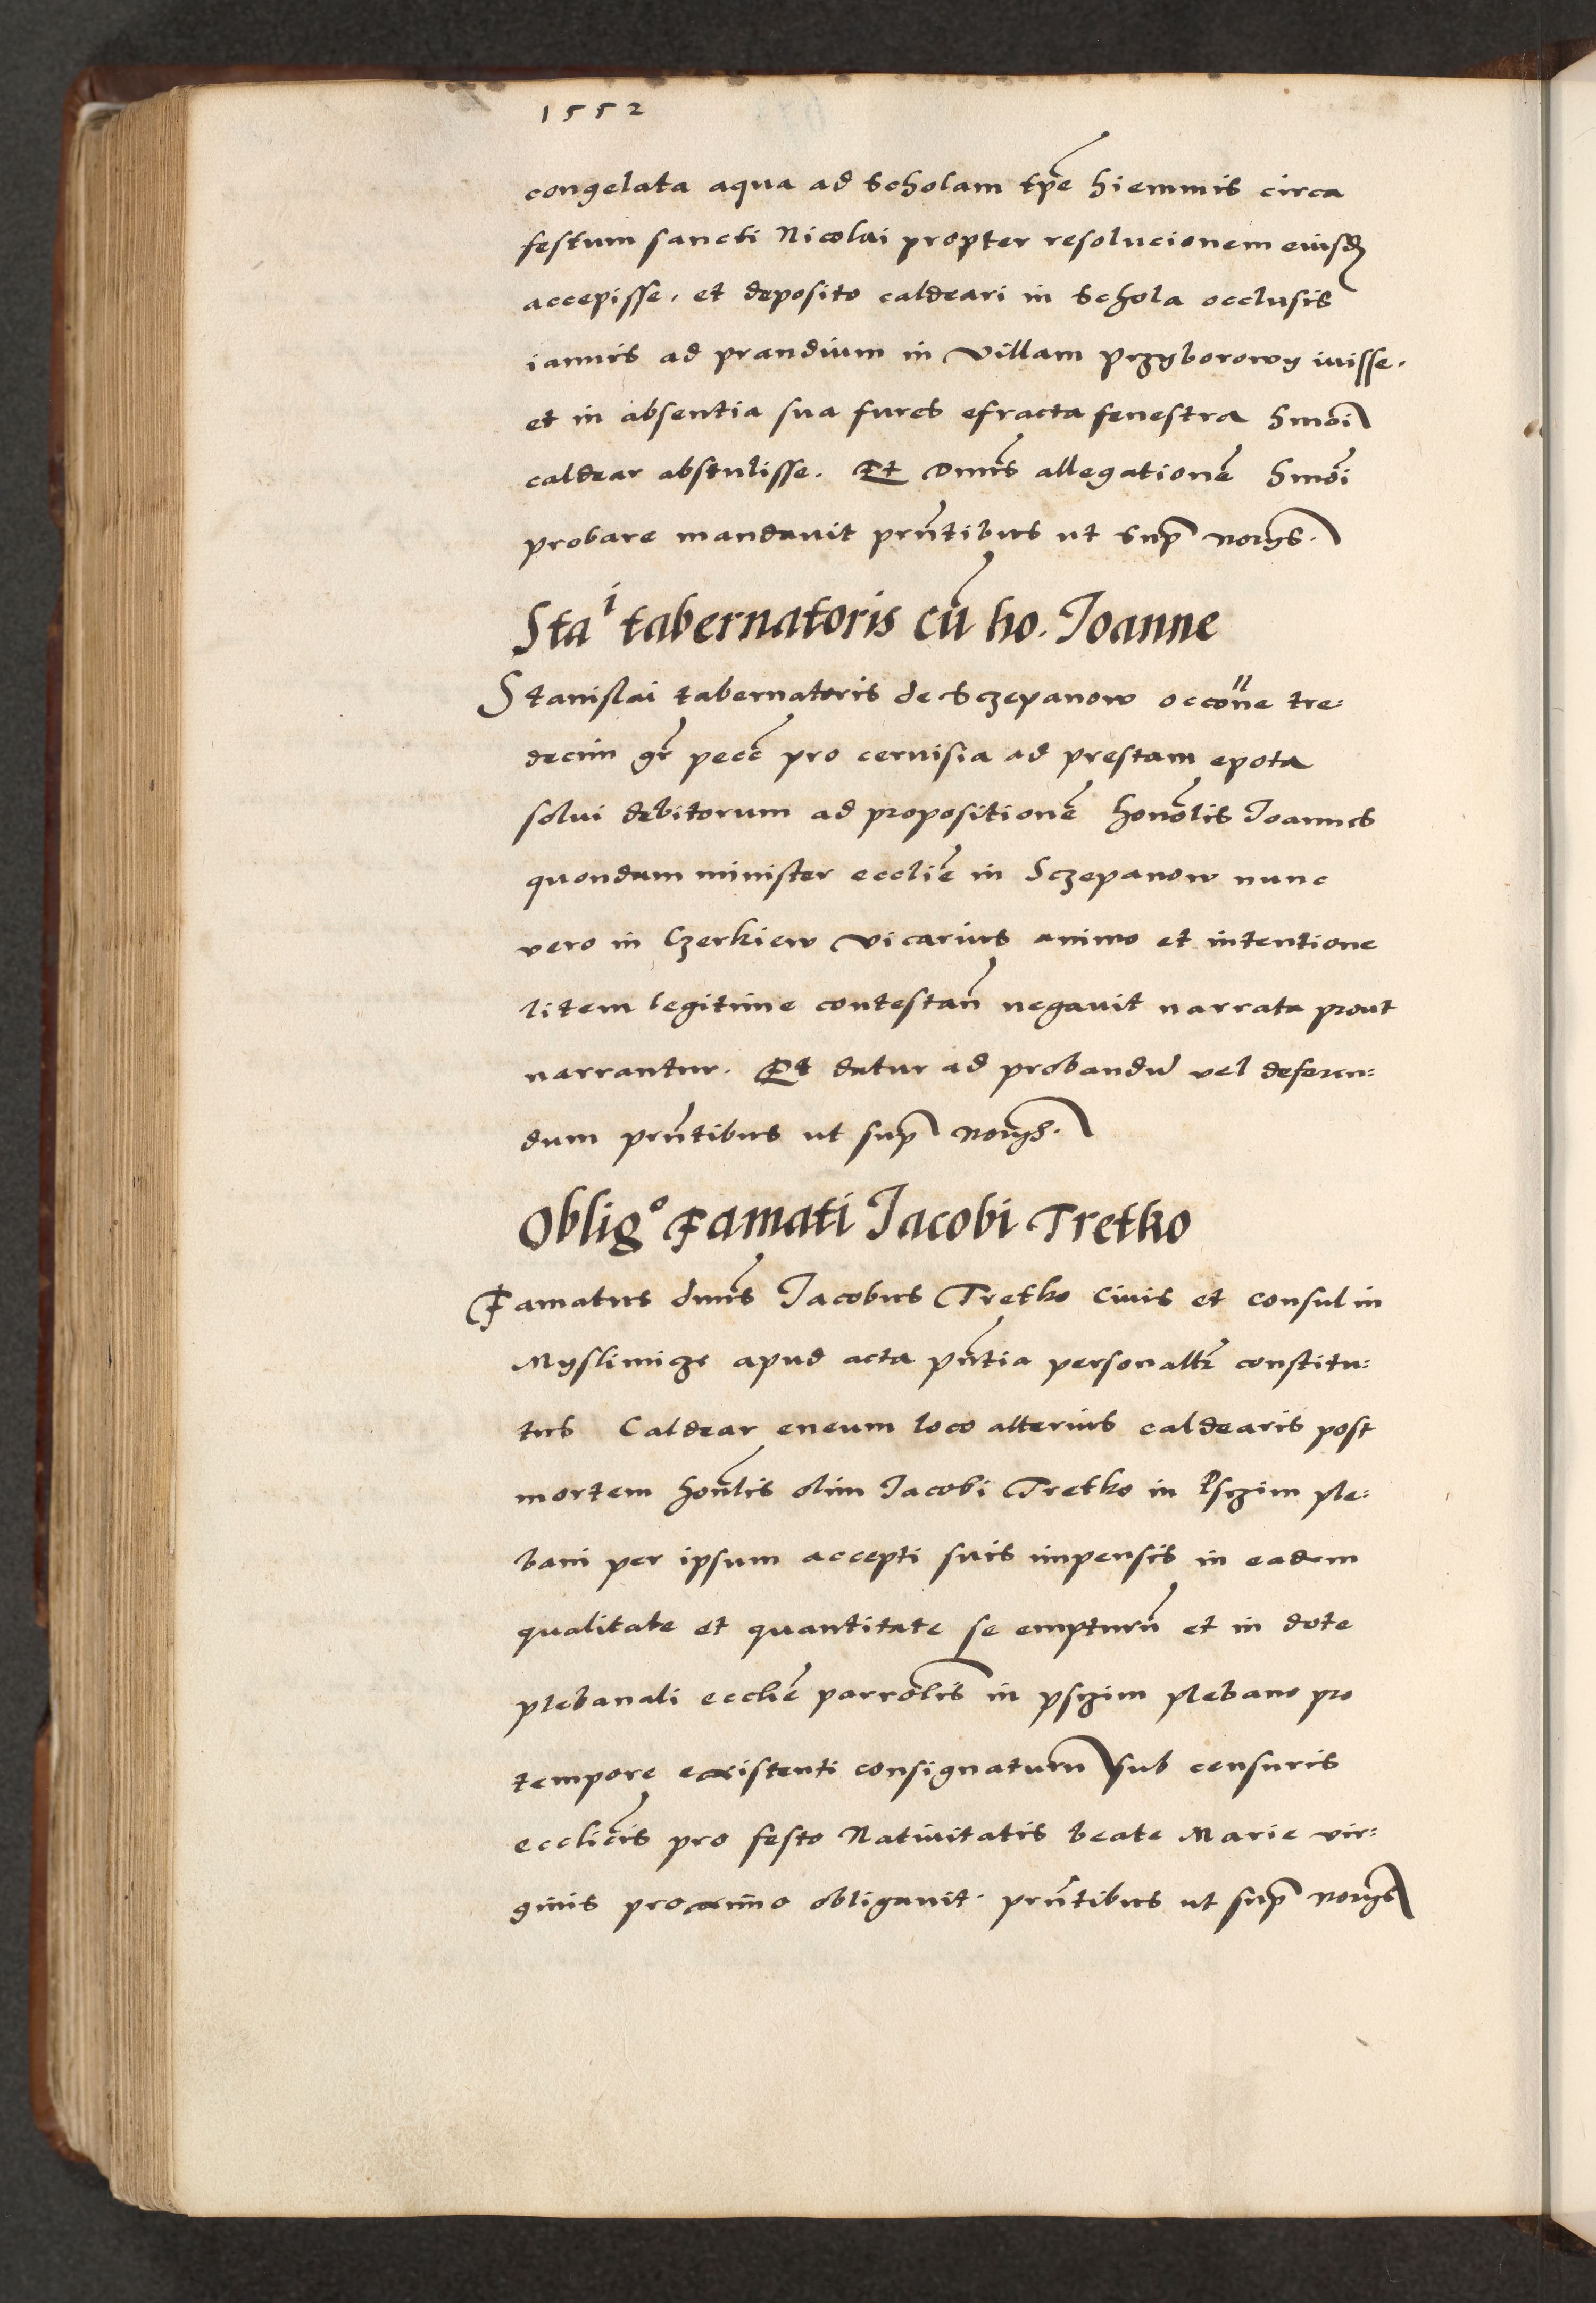 1552
congelata aqua ad scholam tp̄e hiemmis circa
festum sancti Nicolai propter resolucionem eiusd
accepisse. et deposito caldeari in schola occlusis
ianuis ad prandium in villam Przyborowy iuisse.
et in absentia sua fures efracta fenestra hmōi
caldear abstulisse. Et Dnus allegationē hmōi
probare mandauit prn̄tibus ut sup
Staⁱ tabernatoris cū ho. Joanne
Stanislai tabernatoris de Sczepanow occōne tre:
decim gr̄ pecc̄ pro ceruisia ad prestam epota
solui debitorum ad propositionē honōlis Joannes
quondam minister ecclie in Sczepanow nunc
vero in Czerkiew vicarius animo et intentione
litem legitime contestan̄ negauit narrata prout
narrantur. Et datur ad probandū vel deferen:
dum prn̄tibus ut sup
Obligᵒ Famati Jacobi Tretko
Famatus dnūs Jacobus Tretko Ciuis et consul in
Myslimicze apud acta pn̄tia personaltr̄ constitu:
tus Caldear eneum loco alterius caldearis post
mortem honl̄is olim Jacobi Tretko in Psczim ple:
bani per ipsum accepti suis impensis in eadem
qualitate et quantitate se empturū et in dote
plebanali ecclie parrōlis in psczim plebano pro
tempore existenti consignaturū sub censuris
ecclicis pro festo Natiuitatis beate Marie vir:
ginis proximo obligauit. prn̄tibus ut sup